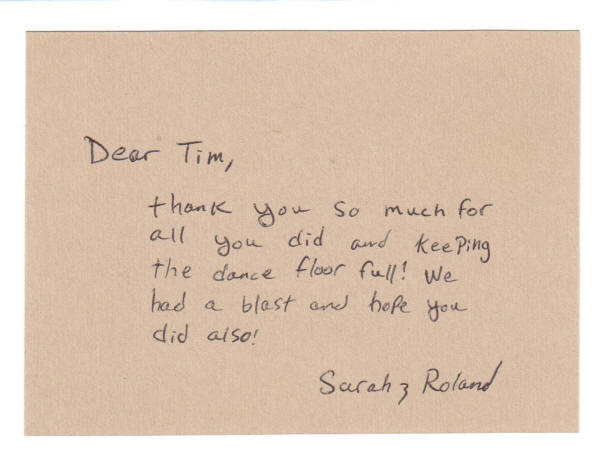 Dear Tim,
thank you so much for
all you did and keeping
the dance floor full! We
had a blast and hope you
did also!
Sarah & Roland